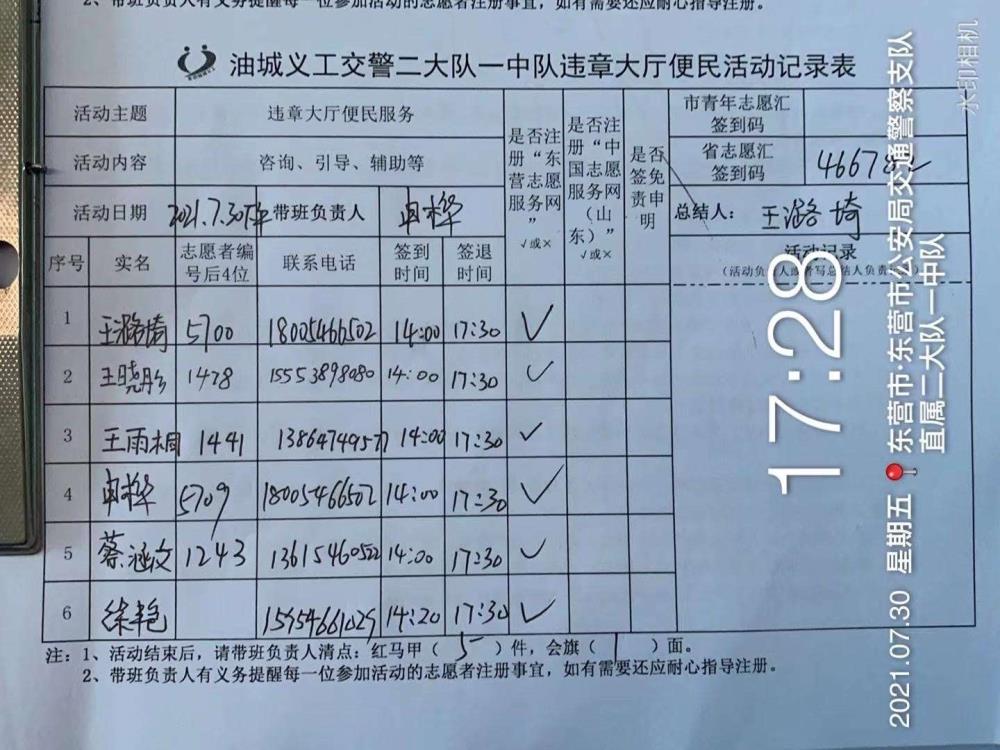 2、带班负责人有义务提醒每一位参加活动的志愿者注册事宜，如有需要还应耐心指导注册。
油城义工交警二大队一中队违章大厅便民活动记录表
活动主题 违章大厅便民服务 是否注册“东营志愿服务网” √或× 是否注册“中国志愿服务网（山东）” √或× 是否签免责申明 市青年志愿汇签到码
活动内容 咨询、引导、辅助等 省志愿汇签到码 46678
活动日期 2021.7.30下午 带班负责人 申桦 总结人： 王潞埼
序号 实名 志愿者编号后4位 联系电话 签到时间 签退时间 活动记录
1 王潞埼 5700 18005466502 14:00 17:30 √
2 王晓彤 1478 15553898080 14:00 17:30 √
3 王雨桐 1441 13864749577 14:00 17:30 √
4 申桦 5709 18005466502 14:00 17:30 √
5 蔡涵文 1243 13615460522 14:00 17:30 √
6 徐艳 15954661029 14:20 17:30 √
注：1、活动结束后，请带班负责人清点：红马甲（ 5 ）件，会旗（ 1 ）面。
2、带班负责人有义务提醒每一位参加活动的志愿者注册事宜，如有需要还应耐心指导注册。
17:28
2021.07.30 星期五 东营市·东营市公安局交通警察支队
直属二大队一中队
水印相机